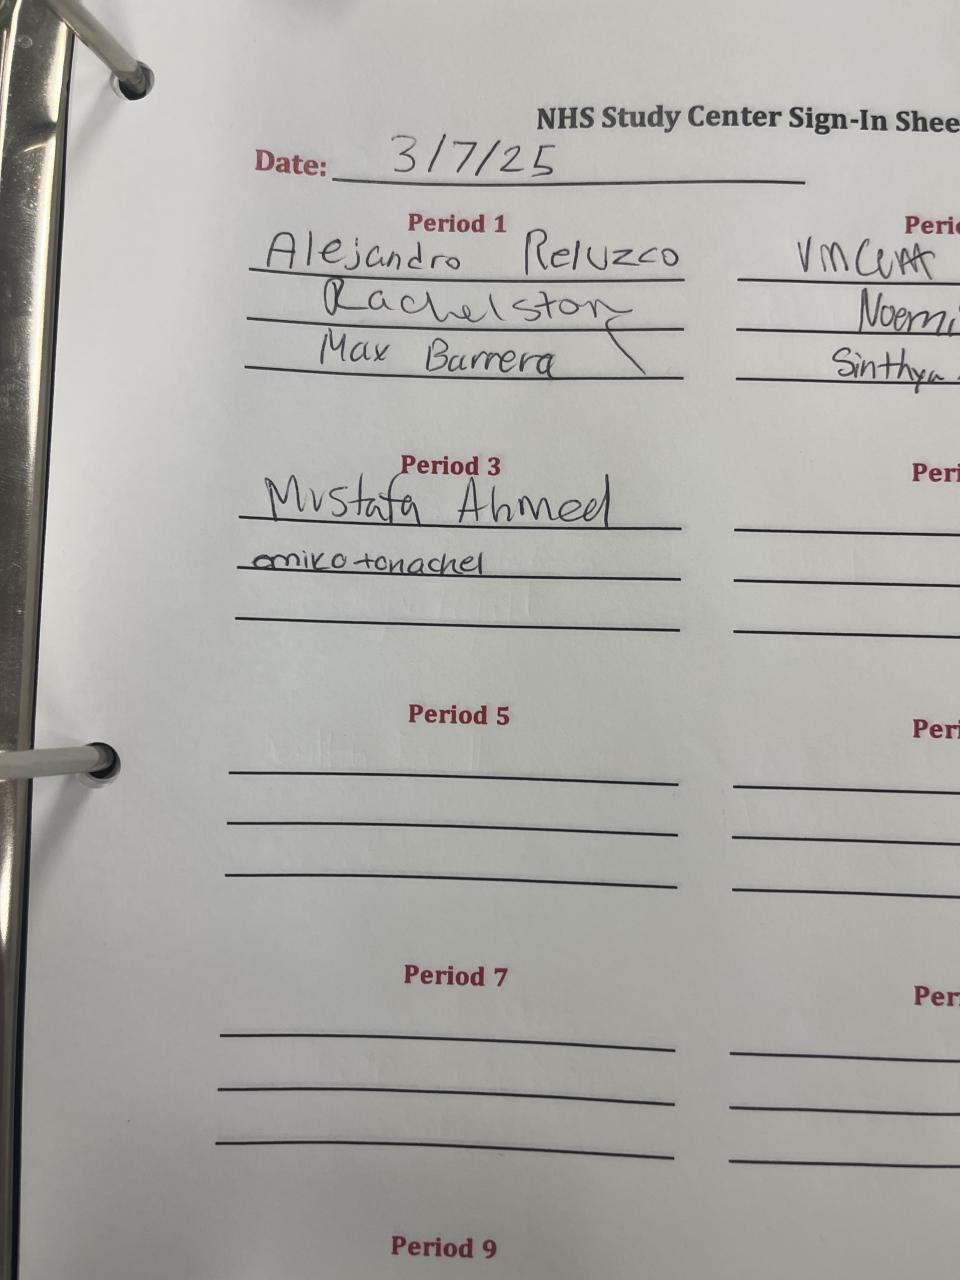 NHS Study Center Sign-In Shee
Date: 3/7/25
Period 1
Alejandro Reluzco
Rachel Stor
Max Barrera
Perio
Vincent
Noemi
Sinthya
Period 3
Mustafa Ahmed
emiko tonachel
Peri
Period 5
Peri
Period 7
Per
Period 9